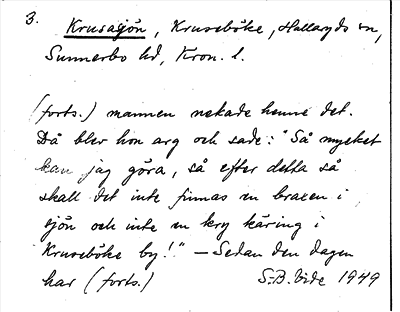 3.
Krusasjön, Kruseböke, Hallaryds sn,
Sunnerbo hd, Kron. l.
(forts.) mannen nekade henne det.
Då blev hon arg och sade: "Så mycket
kan jag göra, så efter detta så
skall det inte finnas en braxen i
sjön och inte en kry käring i
Kruseböke by!" — Sedan den dagen
har (forts.) S.-B. Vide 1949